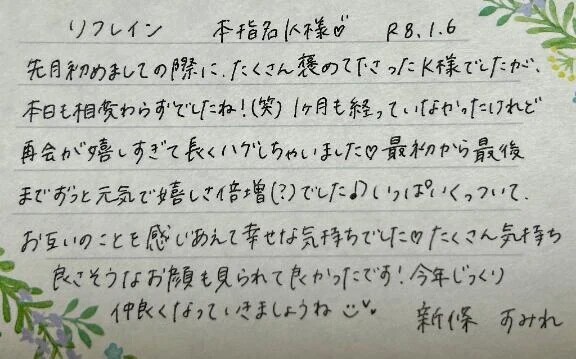 リフレイン 本指名K様♡ R8.1.6
先月初めましての際に、たくさん褒めて下さったK様でしたが、
本日も相変わらずでしたね!(笑) 1ヶ月も経っていなかったけれど
再会が嬉しすぎて長くハグしちゃいました♡ 最初から最後
までずっと元気で嬉しさ倍増(?)でした♪ いっぱいくっついて、
お互いのことを感じあえて幸せな気持ちでした♡ たくさん気持ち
良さそうなお顔も見られて良かったです! 今年じっくり
仲良くなっていきましょうね
新條 すみれ